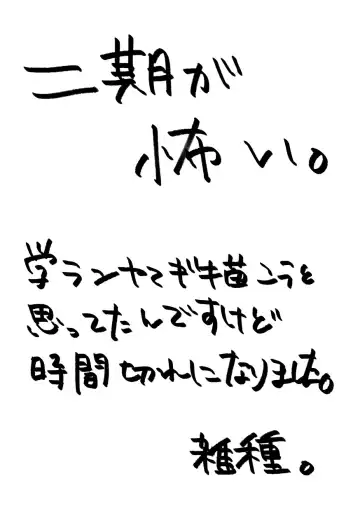 二期が
怖い。
学ランヤマギ描こうと
思ってたんですけど
時間切れになりました。
雑種。